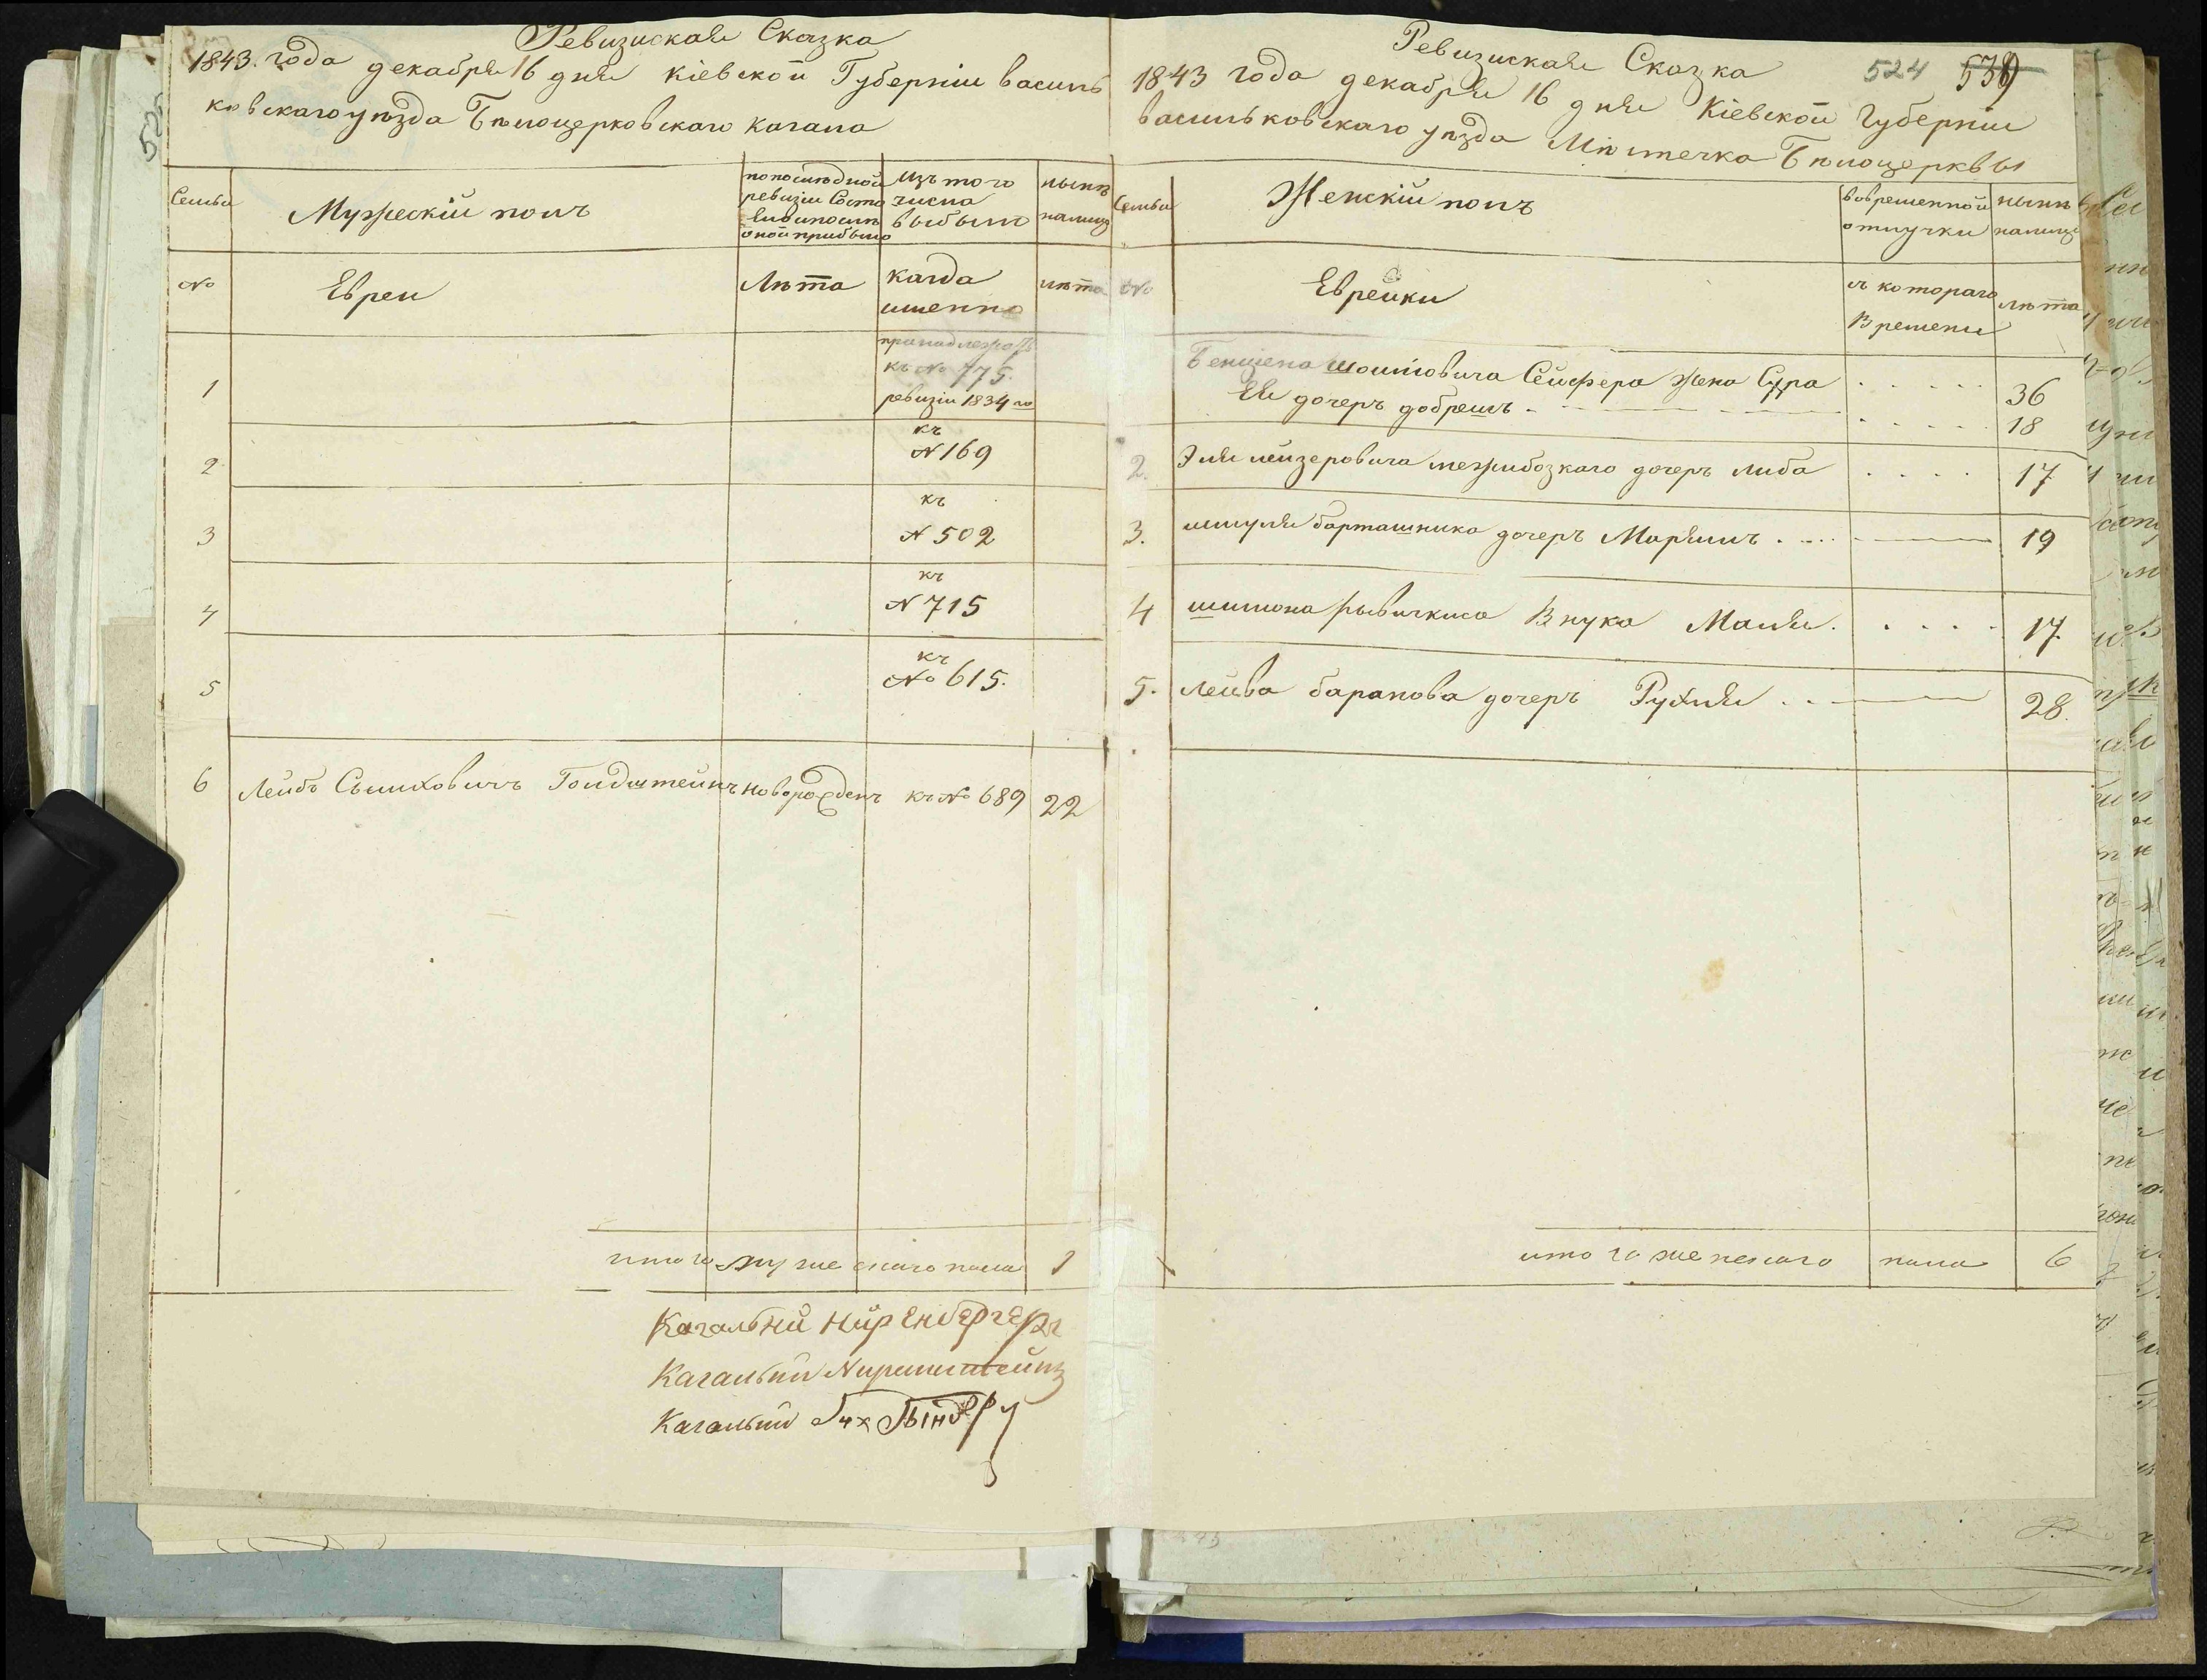 Ревизиская Сказка
1843. года декабря 16 дня Кіевской Губерніи Василь
ковскаго уѣзда Бѣлоцерковскаго кагала
Семьи
Мужескій полъ
по последной
ревизіи Состо
изъ того
числа
выбыло
нынѣ
налицо
оной прибыло
№
Евреи
Лѣта
когда
именно
лѣта
1
принадлежатъ
къ № 775.
ревизіи 1834 го
2
къ
№ 169
3
къ
№ 502
4
къ
№ 715
5
къ
№ 615.
6 Лейбъ Сымховичъ Голдштейнъ новорожденъ къ № 689 22
итого мужескаго пола 1
Кагальний Ниренбергеръ
Кагальний
Кагальний
524 539
Ревизиская Сказка
1843 года декабря 16 дня Кіевской Губерніи
Васильковскаго уѣзда Мѣстечка Бѣлоцерквы
Семьи
Женскій полъ
вовременной
отлучки
нынѣ
налице
№
Еврейки
съ котораго
Времени
лѣта
Бенціона Сейфера жена Сура 36
Ея дочеръ добрешъ 18
2. Эли лейзеровича межибозкаго дочеръ либа 17
3. шмуля барташника дочеръ Марьямъ 19
4 шимона рывичкиса Внука Маля. 17.
5. лейба баранова дочеръ Рухля 28.
итого женскаго пола 6